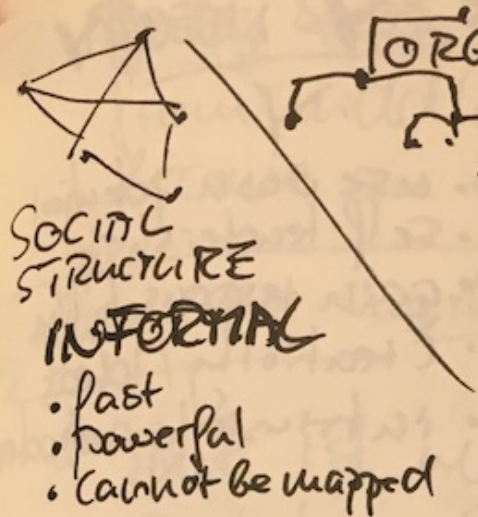 ORG
SOCIAL
STRUCTURE
INFORMAL
• fast
• powerful
• cannot be mapped